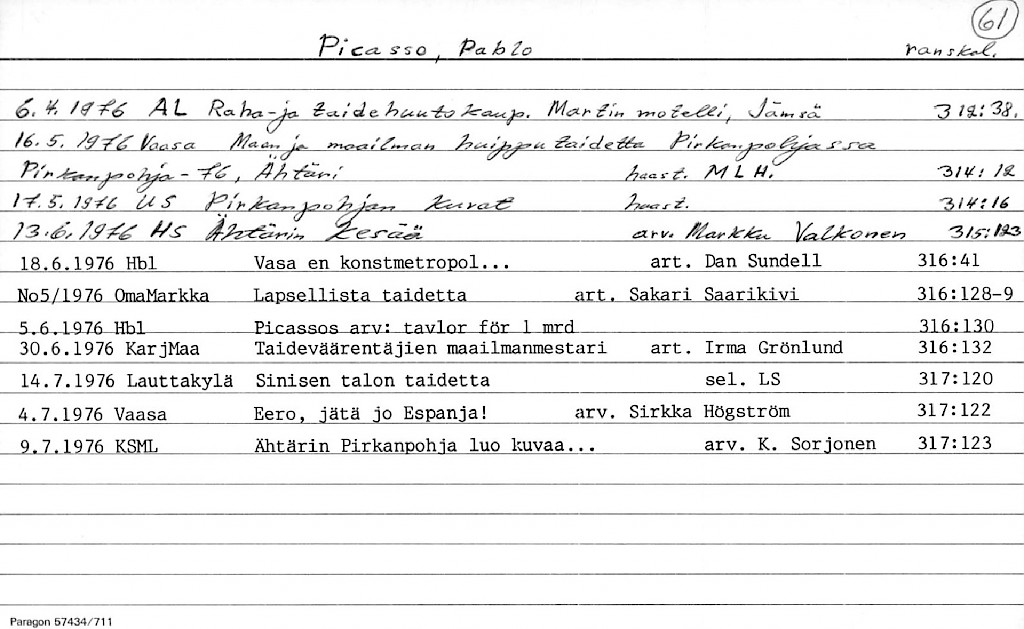 61
Picasso, Pablo ranskal.
6.4.1976 AL Raha-ja taidehuutokaup. Martin motelli, Jämsä 312:38.
16.5.1976 Vaasa Maan ja maailman huipputaidetta Pirkanpohjassa
Pirkanpohja-76, Ähtäri haast. MLH. 314:12
17.5.1976 US Pirkanpohjan kuvat haast. 314:16
13.6.1976 HS Ähtärin kesää arv. Markku Valkonen 315:123
18.6.1976 Hbl Vasa en konstmetropol... art. Dan Sundell 316:41
No5/1976 OmaMarkka Lapsellista taidetta art. Sakari Saarikivi 316:128-9
5.6.1976 Hbl Picassos arv: tavlor för 1 mrd 316:130
30.6.1976 KarjMaa Taideväärentäjien maailmanmestari art. Irma Grönlund 316:132
14.7.1976 Lauttakylä Sinisen talon taidetta sel. LS 317:120
4.7.1976 Vaasa Eero, jätä jo Espanja! arv. Sirkka Högström 317:122
9.7.1976 KSML Ähtärin Pirkanpohja luo kuvaa... arv. K. Sorjonen 317:123
Paragon 57434/711